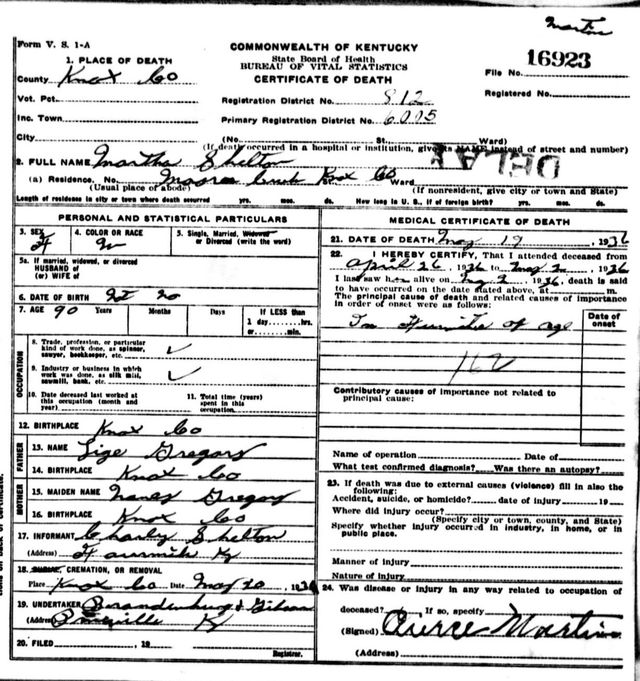 Martin
Form V. S. 1-A
COMMONWEALTH OF KENTUCKY
State Board of Health
BUREAU OF VITAL STATISTICS
CERTIFICATE OF DEATH
16923
File No.
Registered No.
1. PLACE OF DEATH
County Knox Co
Vot. Pct.
Inc. Town
City
Registration District No. 812
Primary Registration District No. 6005
(No. St. Ward)
(If death occurred in a hospital or institution, give its NAME instead of street and number)
DELAY
2. FULL NAME Martha Shelton
(a) Residence. No. Moore Creek Knox Co Ward
(Usual place of abode) (If nonresident, give city or town and State)
Length of residence in city or town where death occurred yrs. mos. ds. How long in U. S., if of foreign birth? yrs. mos. ds.
PERSONAL AND STATISTICAL PARTICULARS
3. SEX F
4. COLOR OR RACE W
5. Single, Married, Widowed or Divorced (write the word)
5a. If married, widowed, or divorced
HUSBAND of
(or) WIFE of
6. DATE OF BIRTH
7. AGE 90 Years Months Days If LESS than
1 day........hrs.
or........min.
OCCUPATION
8. Trade, profession, or particular
kind of work done, as spinner,
sawyer, bookkeeper, etc. ✓
9. Industry or business in which
work was done, as silk mill,
sawmill, bank, etc. ✓
10. Date deceased last worked at
this occupation (month and
year)
11. Total time (years)
spent in this
occupation.
12. BIRTHPLACE Knox Co
FATHER
13. NAME Lige Gregory
14. BIRTHPLACE Knox Co
MOTHER
15. MAIDEN NAME Nancy Gregory
16. BIRTHPLACE Knox Co
17. INFORMANT Charly Shelton
(Address) Ky
18. BURIAL, CREMATION, OR REMOVAL
Place Knox Co Date May 20, 1936
19. UNDERTAKER Brandenburg & Gibson
(Address) Pineville Ky
20. FILED , 19
Registrar.
MEDICAL CERTIFICATE OF DEATH
21. DATE OF DEATH May 19, 1936
22. I HEREBY CERTIFY, That I attended deceased from
April 26, 1936 to May 2, 1936
I last saw her alive on May 2, 1936, death is said
to have occurred on the date stated above, at m.
The principal cause of death and related causes of importance
in order of onset were as follows:
Date of
onset
of age
162
Contributory causes of importance not related to
principal cause:
Name of operation Date of
What test confirmed diagnosis? Was there an autopsy?
23. If death was due to external causes (violence) fill in also the
following:
Accident, suicide, or homicide? date of injury 19
Where did injury occur?
(Specify city or town, county, and State)
Specify whether injury occurred in industry, in home, or in
public place.
Manner of injury
Nature of injury
24. Was disease or injury in any way related to occupation of
deceased? If so, specify
(Signed) Pierce Martin
(Address)